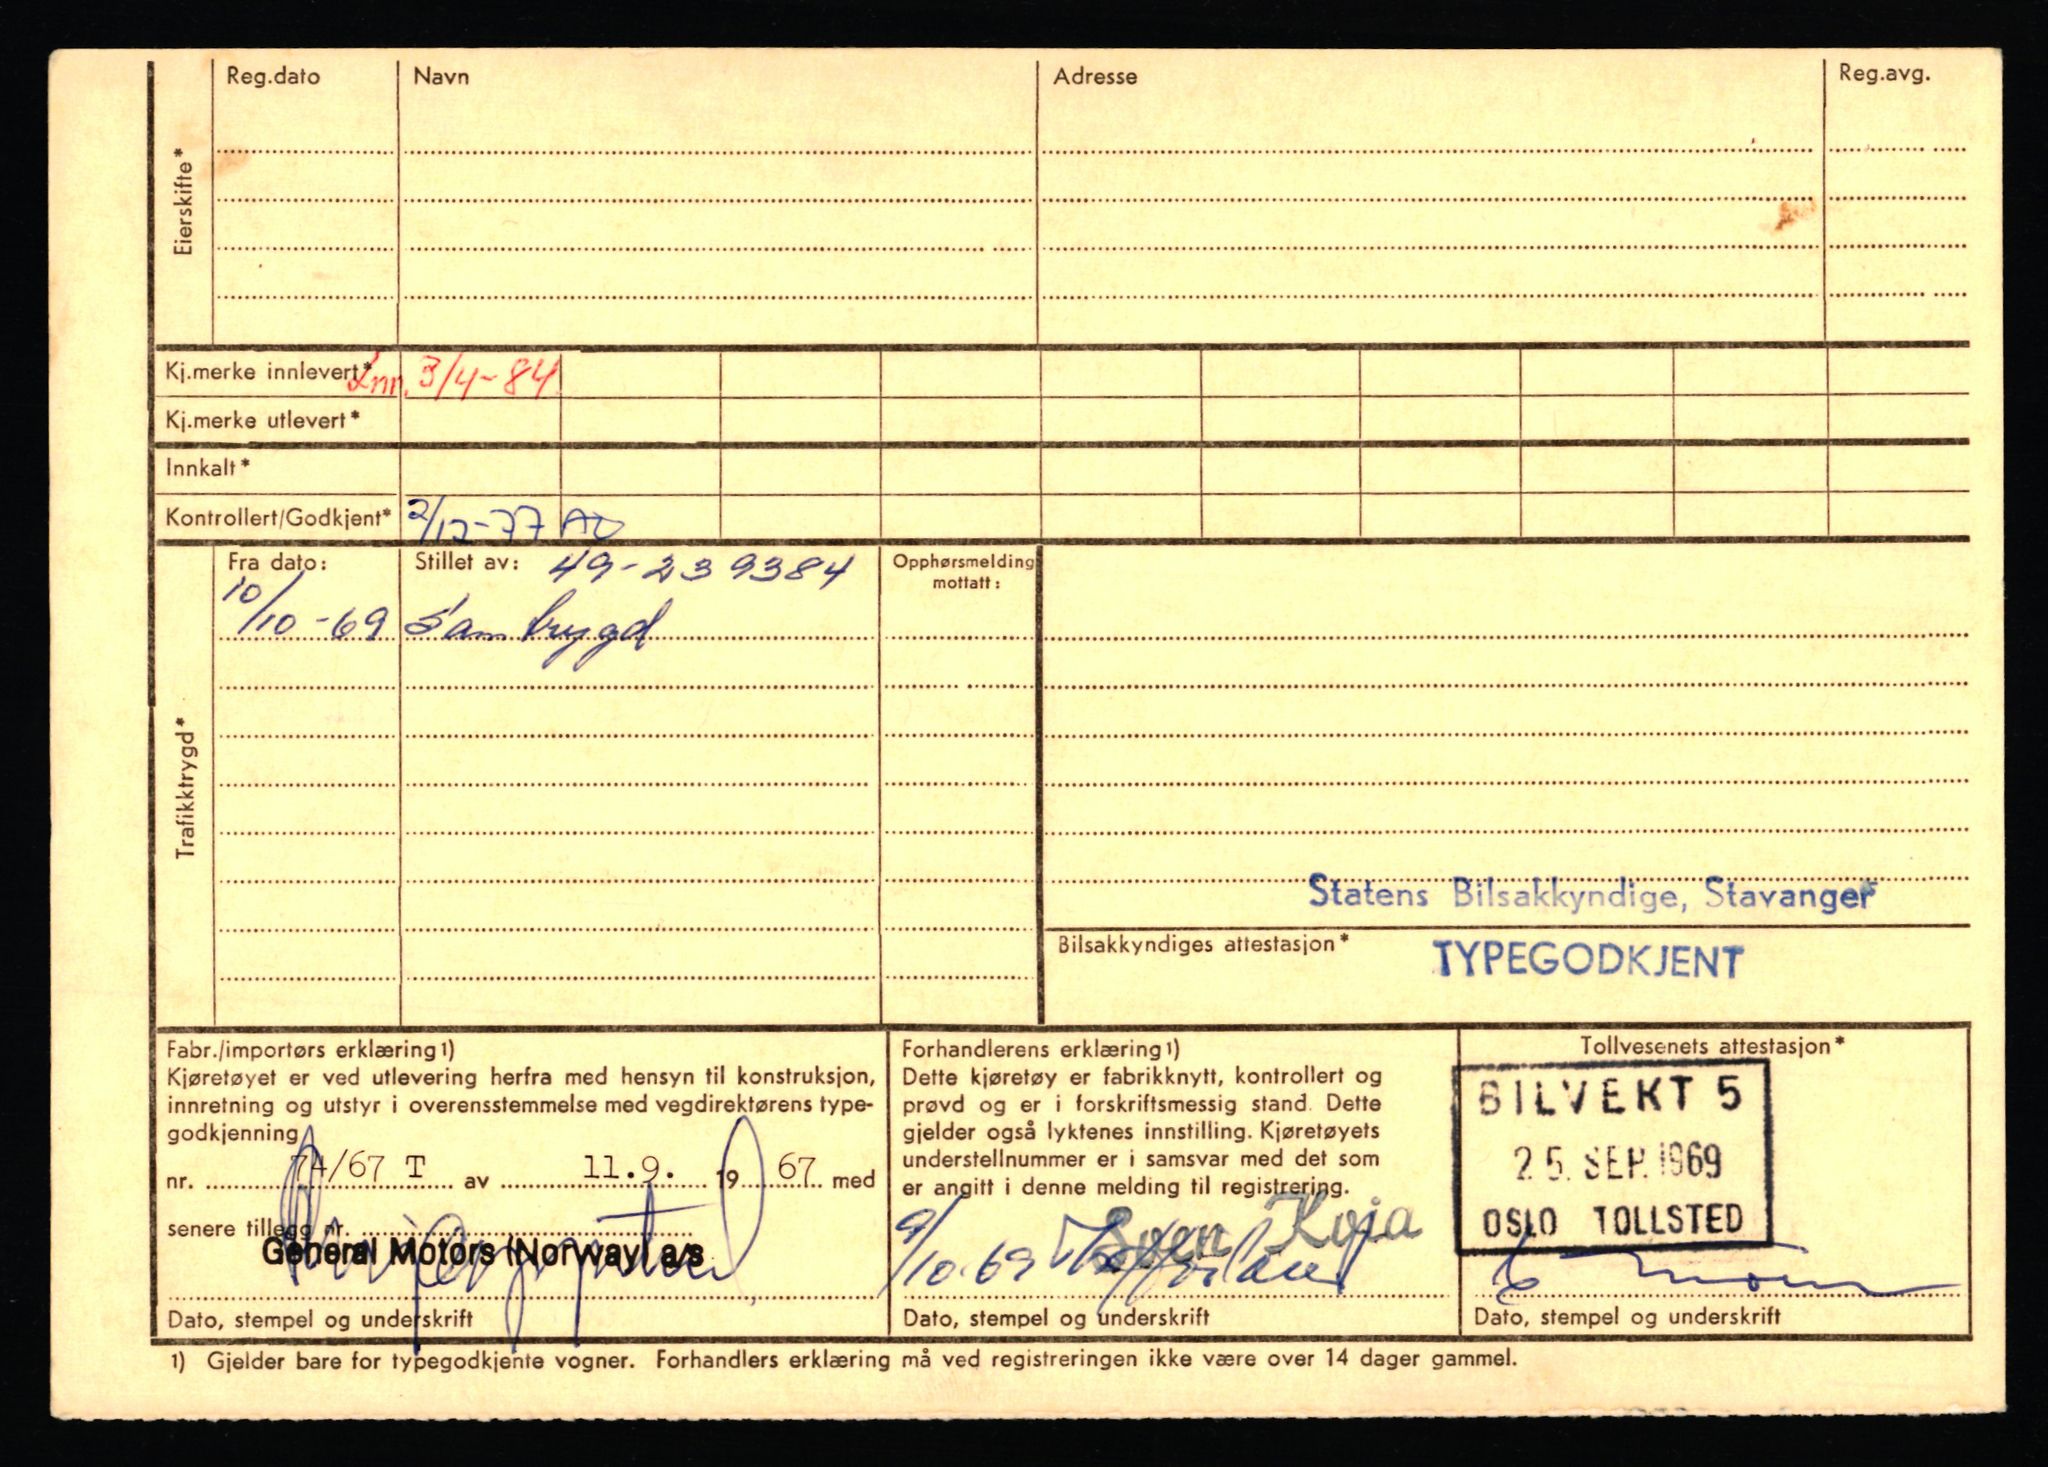 Reg.dato Navn Adresse Reg.avg.
Eierskifte*
Kj.merke innlevert* Inn. 3/4-84
Kj.merke utlevert*
Innkalt*
Kontrollert/Godkjent* 2/12-77
Trafikktrygd*
Fra dato: Stillet av: 49-239384 Opphørsmelding mottatt:
10/10-69 Samtrygd
Statens Bilsakkyndige, Stavanger
Bilsakkyndiges attestasjon* TYPEGODKJENT
Fabr./importørs erklæring1)
Kjøretøyet er ved utlevering herfra med hensyn til konstruksjon,
innretning og utstyr i overensstemmelse med vegdirektørens type-
godkjenning
nr. 74/67 T av 11.9. 19 67 med
senere tillegg nr.
General Motors (Norway) a/s
Dato, stempel og underskrift
Forhandlerens erklæring1)
Dette kjøretøy er fabrikknytt, kontrollert og
prøvd og er i forskriftsmessig stand. Dette
gjelder også lyktenes innstilling. Kjøretøyets
understellnummer er i samsvar med det som
er angitt i denne melding til registrering.
Sven Koja
9/10.69
Dato, stempel og underskrift
Tollvesenets attestasjon*
BILVEKT 5
25. SEP. 1969
OSLO TOLLSTED
Dato, stempel og underskrift
1) Gjelder bare for typegodkjente vogner. Forhandlers erklæring må ved registreringen ikke være over 14 dager gammel.